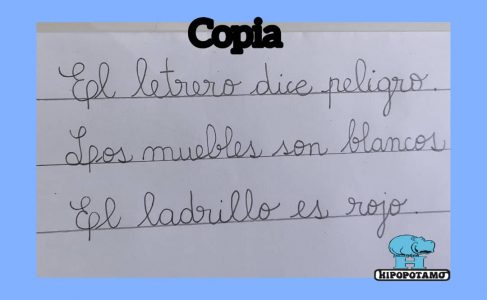 Copia
El letrero dice peligro.
Los muebles son blancos
El ladrillo es rojo.
HIPOPOTAMO